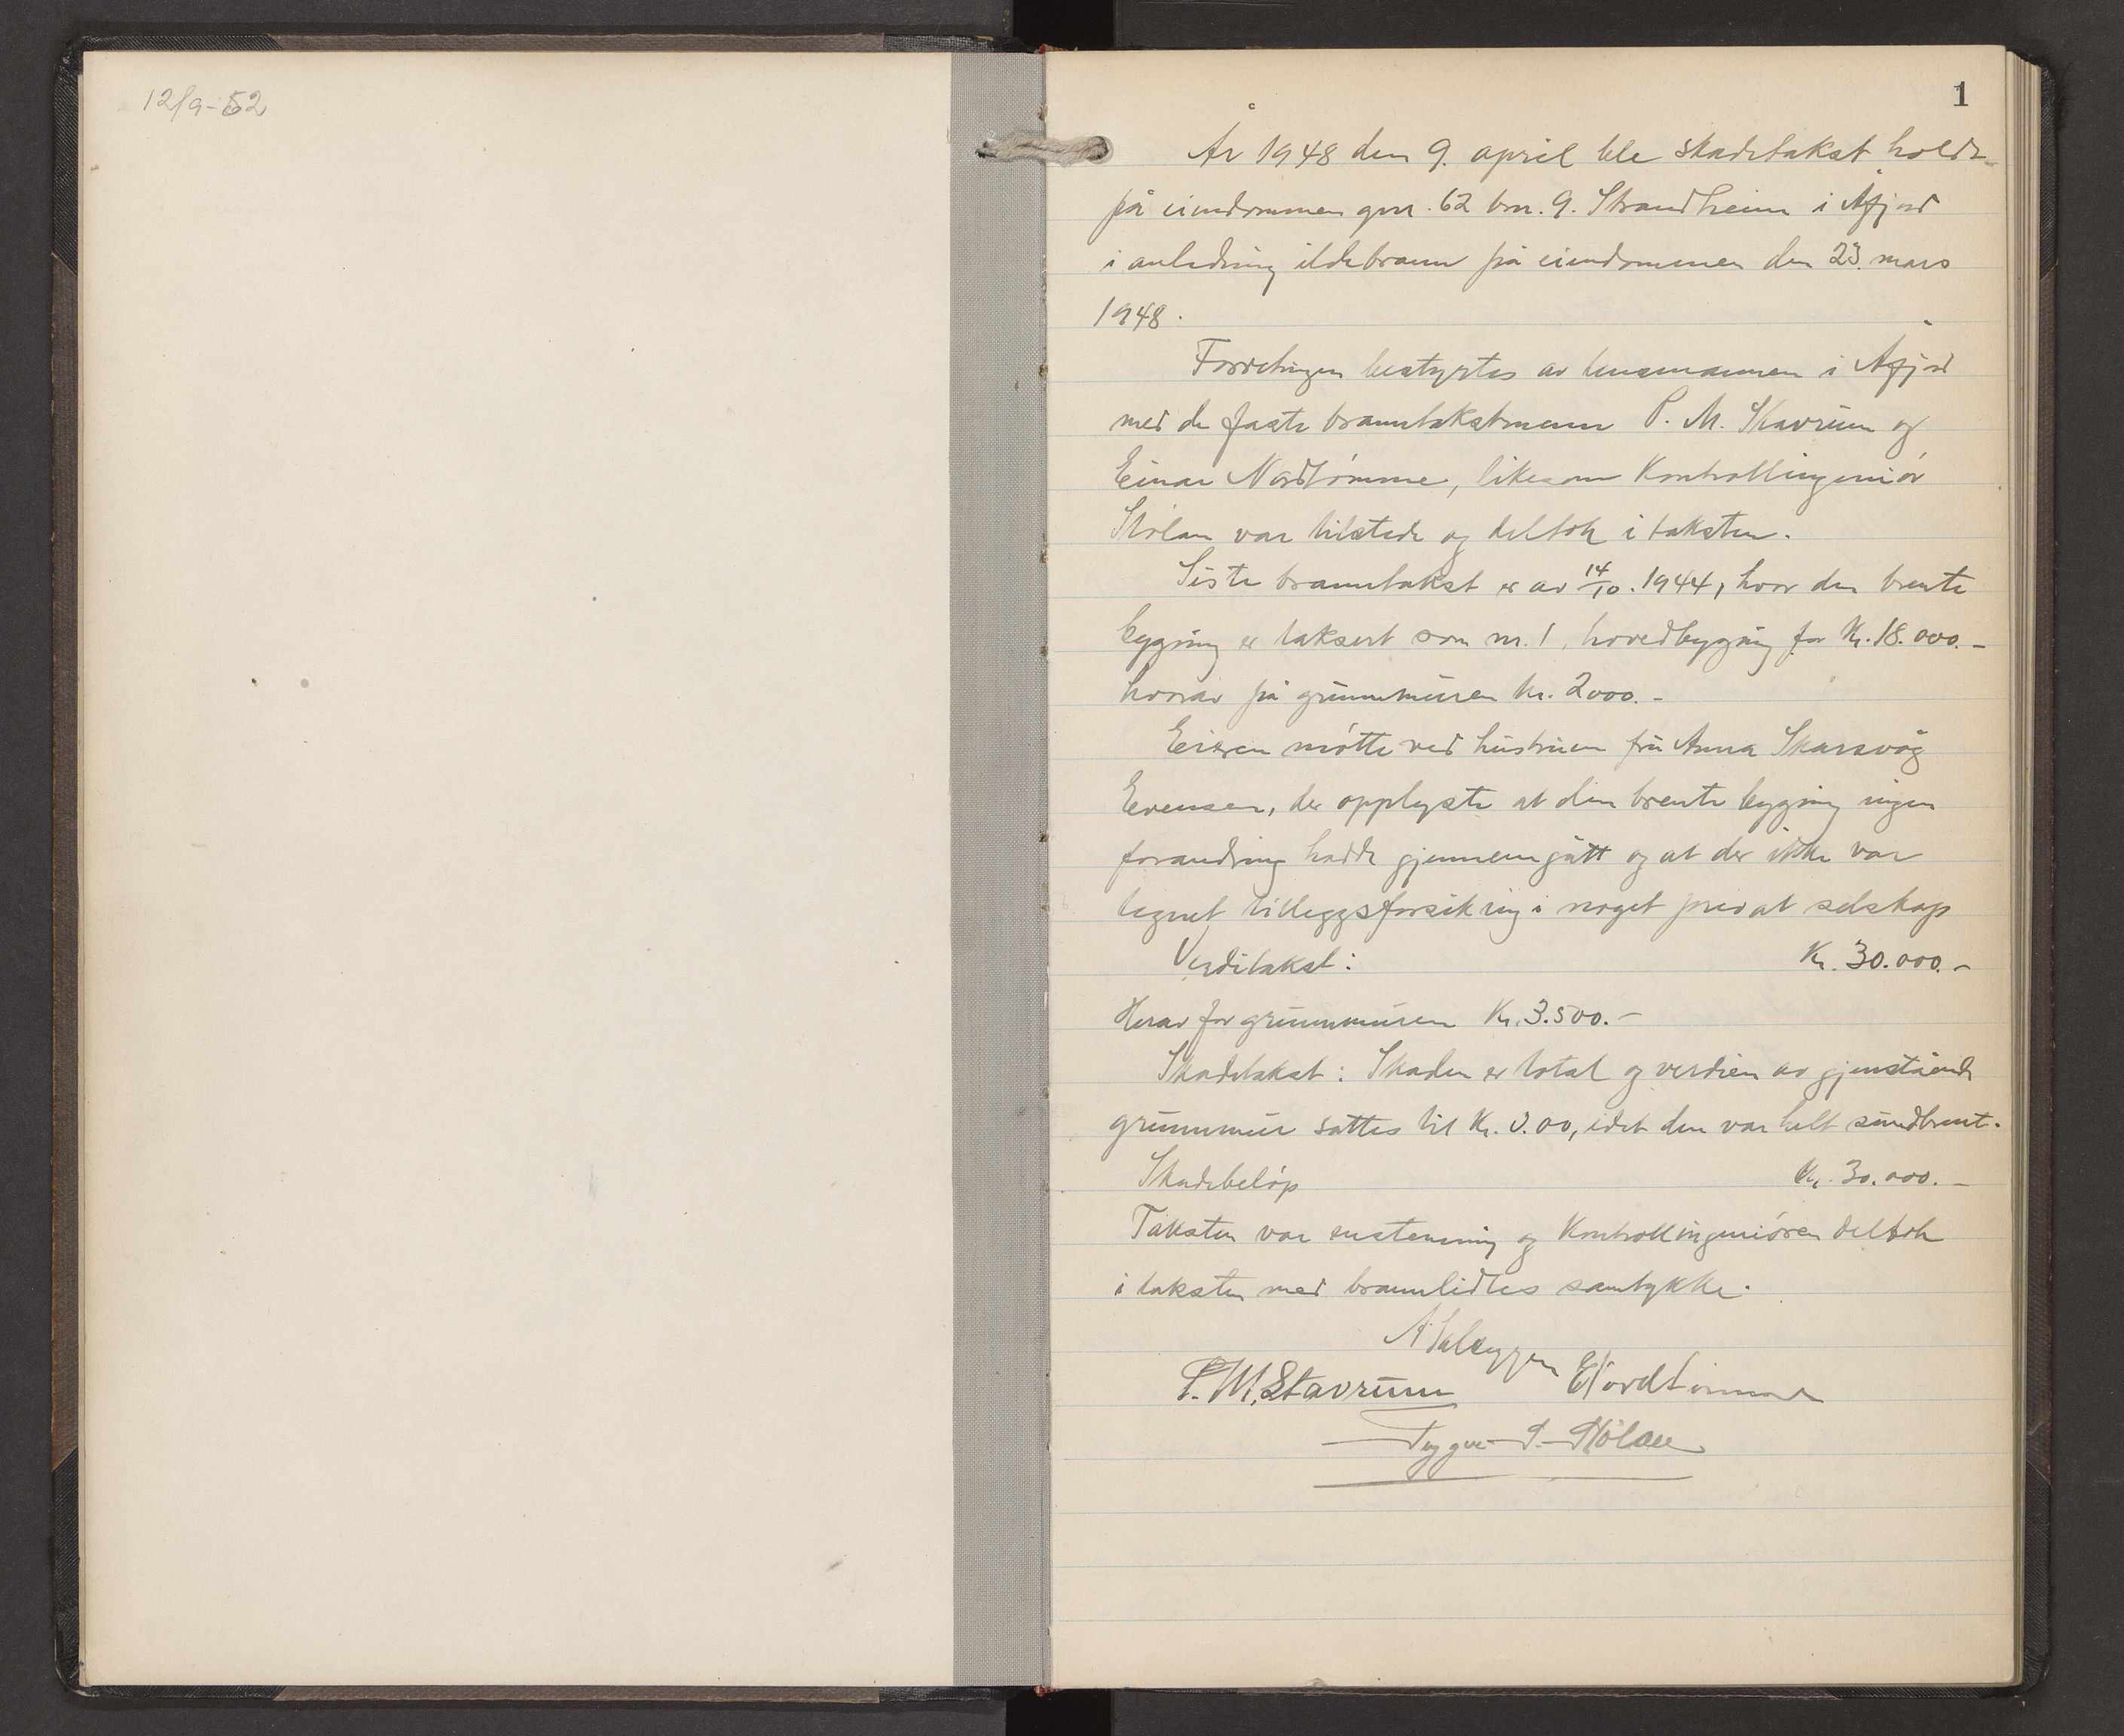 12/9-52
1
År 1948 den 9. april ble skadetakst holdt
på eiendommen gnr. 62 bnr. 9. Strandheim i Åfjord
i anledning ildebrann på eiendommen den 23. mars
1948.
Forretningen bestyrtes av lensmannen i Åfjord
med de faste branntakstmenn P. M. Stavrum og
Einar Nordtømme, likesom Kontrollingeniør
Stølan var tilstede og deltok i taksten.
Siste branntakst er av 14/10. 1944, hvor den brente
bygning er taksert som nr. 1, hovedbygning for Kr. 18.000.-
hvorav på grunnmuren kr. 2000.-
Eieren møtte ved hustruen fru Anna Skarsvåg
Evensen, der opplyste at den brente bygning ingen
forandring hadde gjennemgått og at der ikke var
tegnet tilleggsforsikring i noget privat selskap
Verditakst: Kr. 30.000.-
Herav for grunnmuren Kr. 3.500.-
Skadetakst: Skaden er total og verdien av gjenstående
grunnmur sattes til Kr. 0.00, idet den var helt sundbrent.
Skadebeløp Kr. 30.000.-
Taksten var enstemmig og Kontrollingeniøren deltok
i taksten med brannlidtes samtykke.
P. M. Stavrum E Nordtømme
Trygve P. Stølan